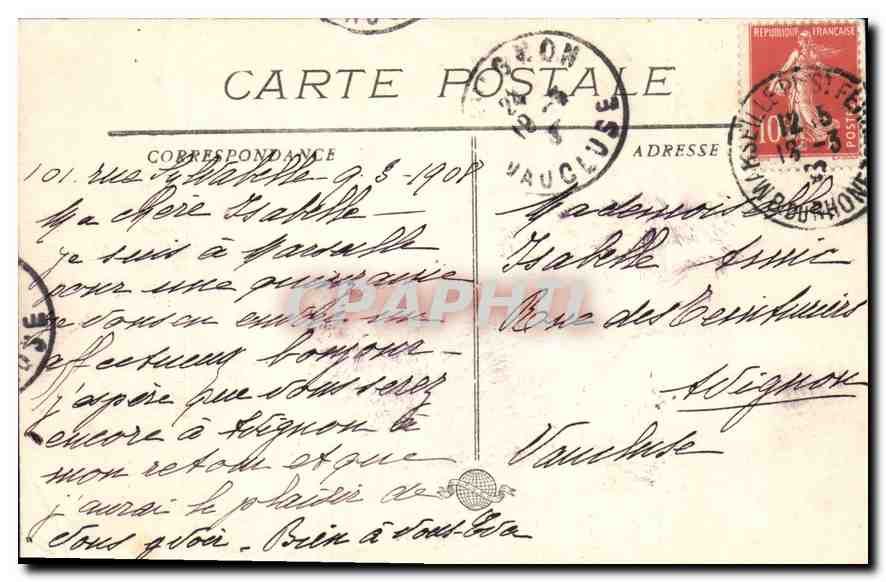 CARTE POSTALE
CORRESPONDANCE
ADRESSE
REPUBLIQUE FRANÇAISE
10
POSTES
MARSEILLE
B. DU RHONE
12
13 - 3
VAUCLUSE
24
18
3
101. rue Sylvabelle 9-3-1908
Ma chère Isabelle -
je suis à Marseille
pour une quinzaine
je vous en envoie un
affectueux bonjour -
j'espère que vous serez
encore à Avignon à
mon retour et que
j'aurai le plaisir de
vous y voir. Bien à vous - Eva
Mademoiselle
Isabelle Amic
Rue des Teinturiers
Avignon
Vaucluse
CPAPHIL